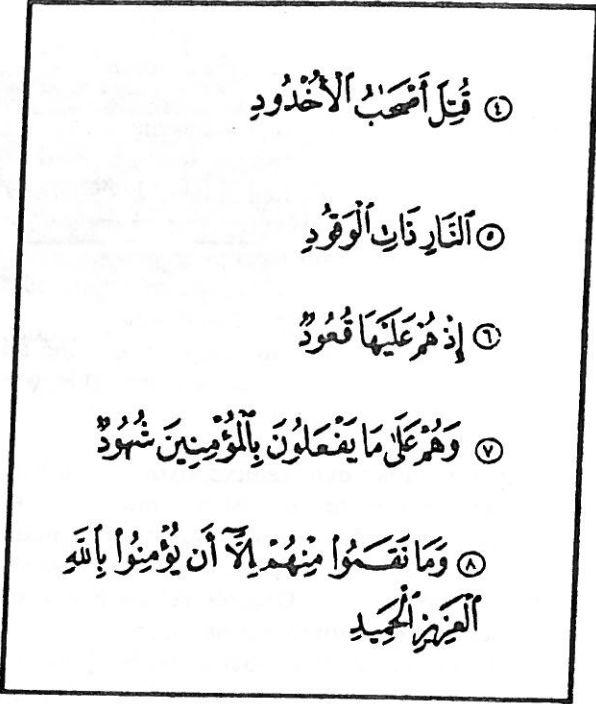 ٤ قُتِلَ أَصْحَٰبُ ٱلْأُخْدُودِ
٥ ٱلنَّارِ ذَاتِ ٱلْوَقُودِ
٦ إِذْ هُمْ عَلَيْهَا قُعُودٌ
٧ وَهُمْ عَلَىٰ مَا يَفْعَلُونَ بِٱلْمُؤْمِنِينَ شُهُودٌ
٨ وَمَا نَقَمُوا۟ مِنْهُمْ إِلَّآ أَن يُؤْمِنُوا۟ بِٱللَّهِ
ٱلْعَزِيزِ ٱلْحَمِيدِ